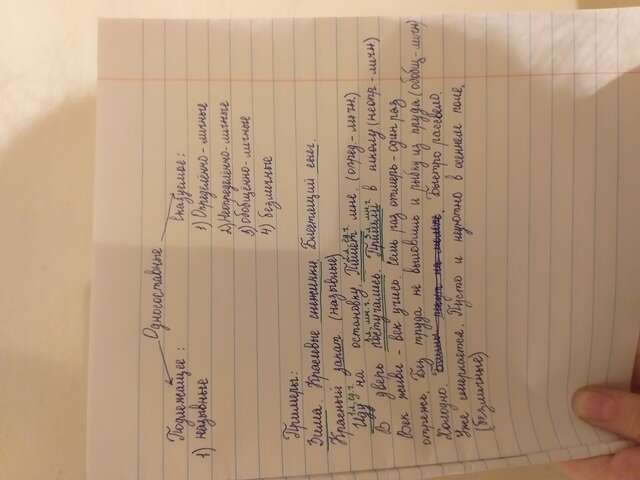 Односоставные
Подлежащее: Сказуемое:
1) назывные 1) Определённо-личные
2) Неопределённо-личные
3) обобщённо-личные
4) безличные
Примеры:
Зима. Красивые снежинки. Блестящий снег.
Красный закат. (назывные)
1л., ед.ч. 2л. ед.ч.
Иду на остановку. Пишет мне. (опред-личн.)
3л. мн.ч. 3л. мн.ч.
В дверь постучались. Пришли в школу (неопр-личн)
Век живи - век учись. Семь раз отмерь-один раз
отрежь. Без труда не выловишь и рыбку из пруда (обобщ-личн)
Холодно. Быстро рассвело.
Уже смеркается. Пусто и неуютно в осеннем поле.
(безличные)